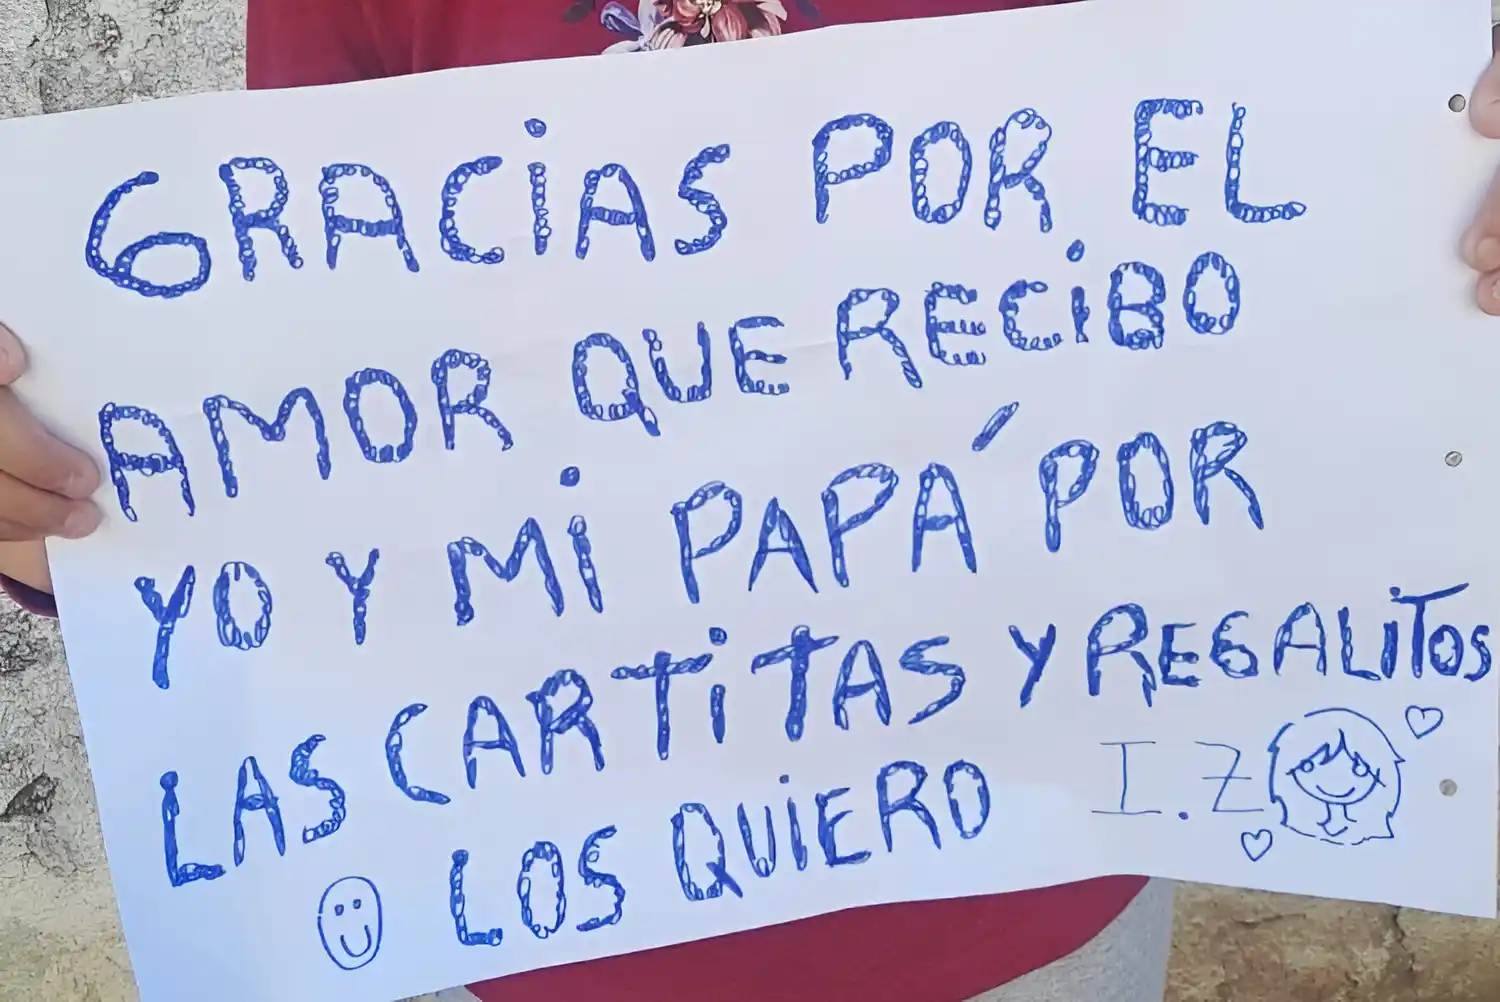 GRACiAS POR EL
AMOR QUE RECiBO
YO Y Mi PAPÁ POR
LAS CARTiTAS Y REGALiTOS
LOS QUiERO
I.Z